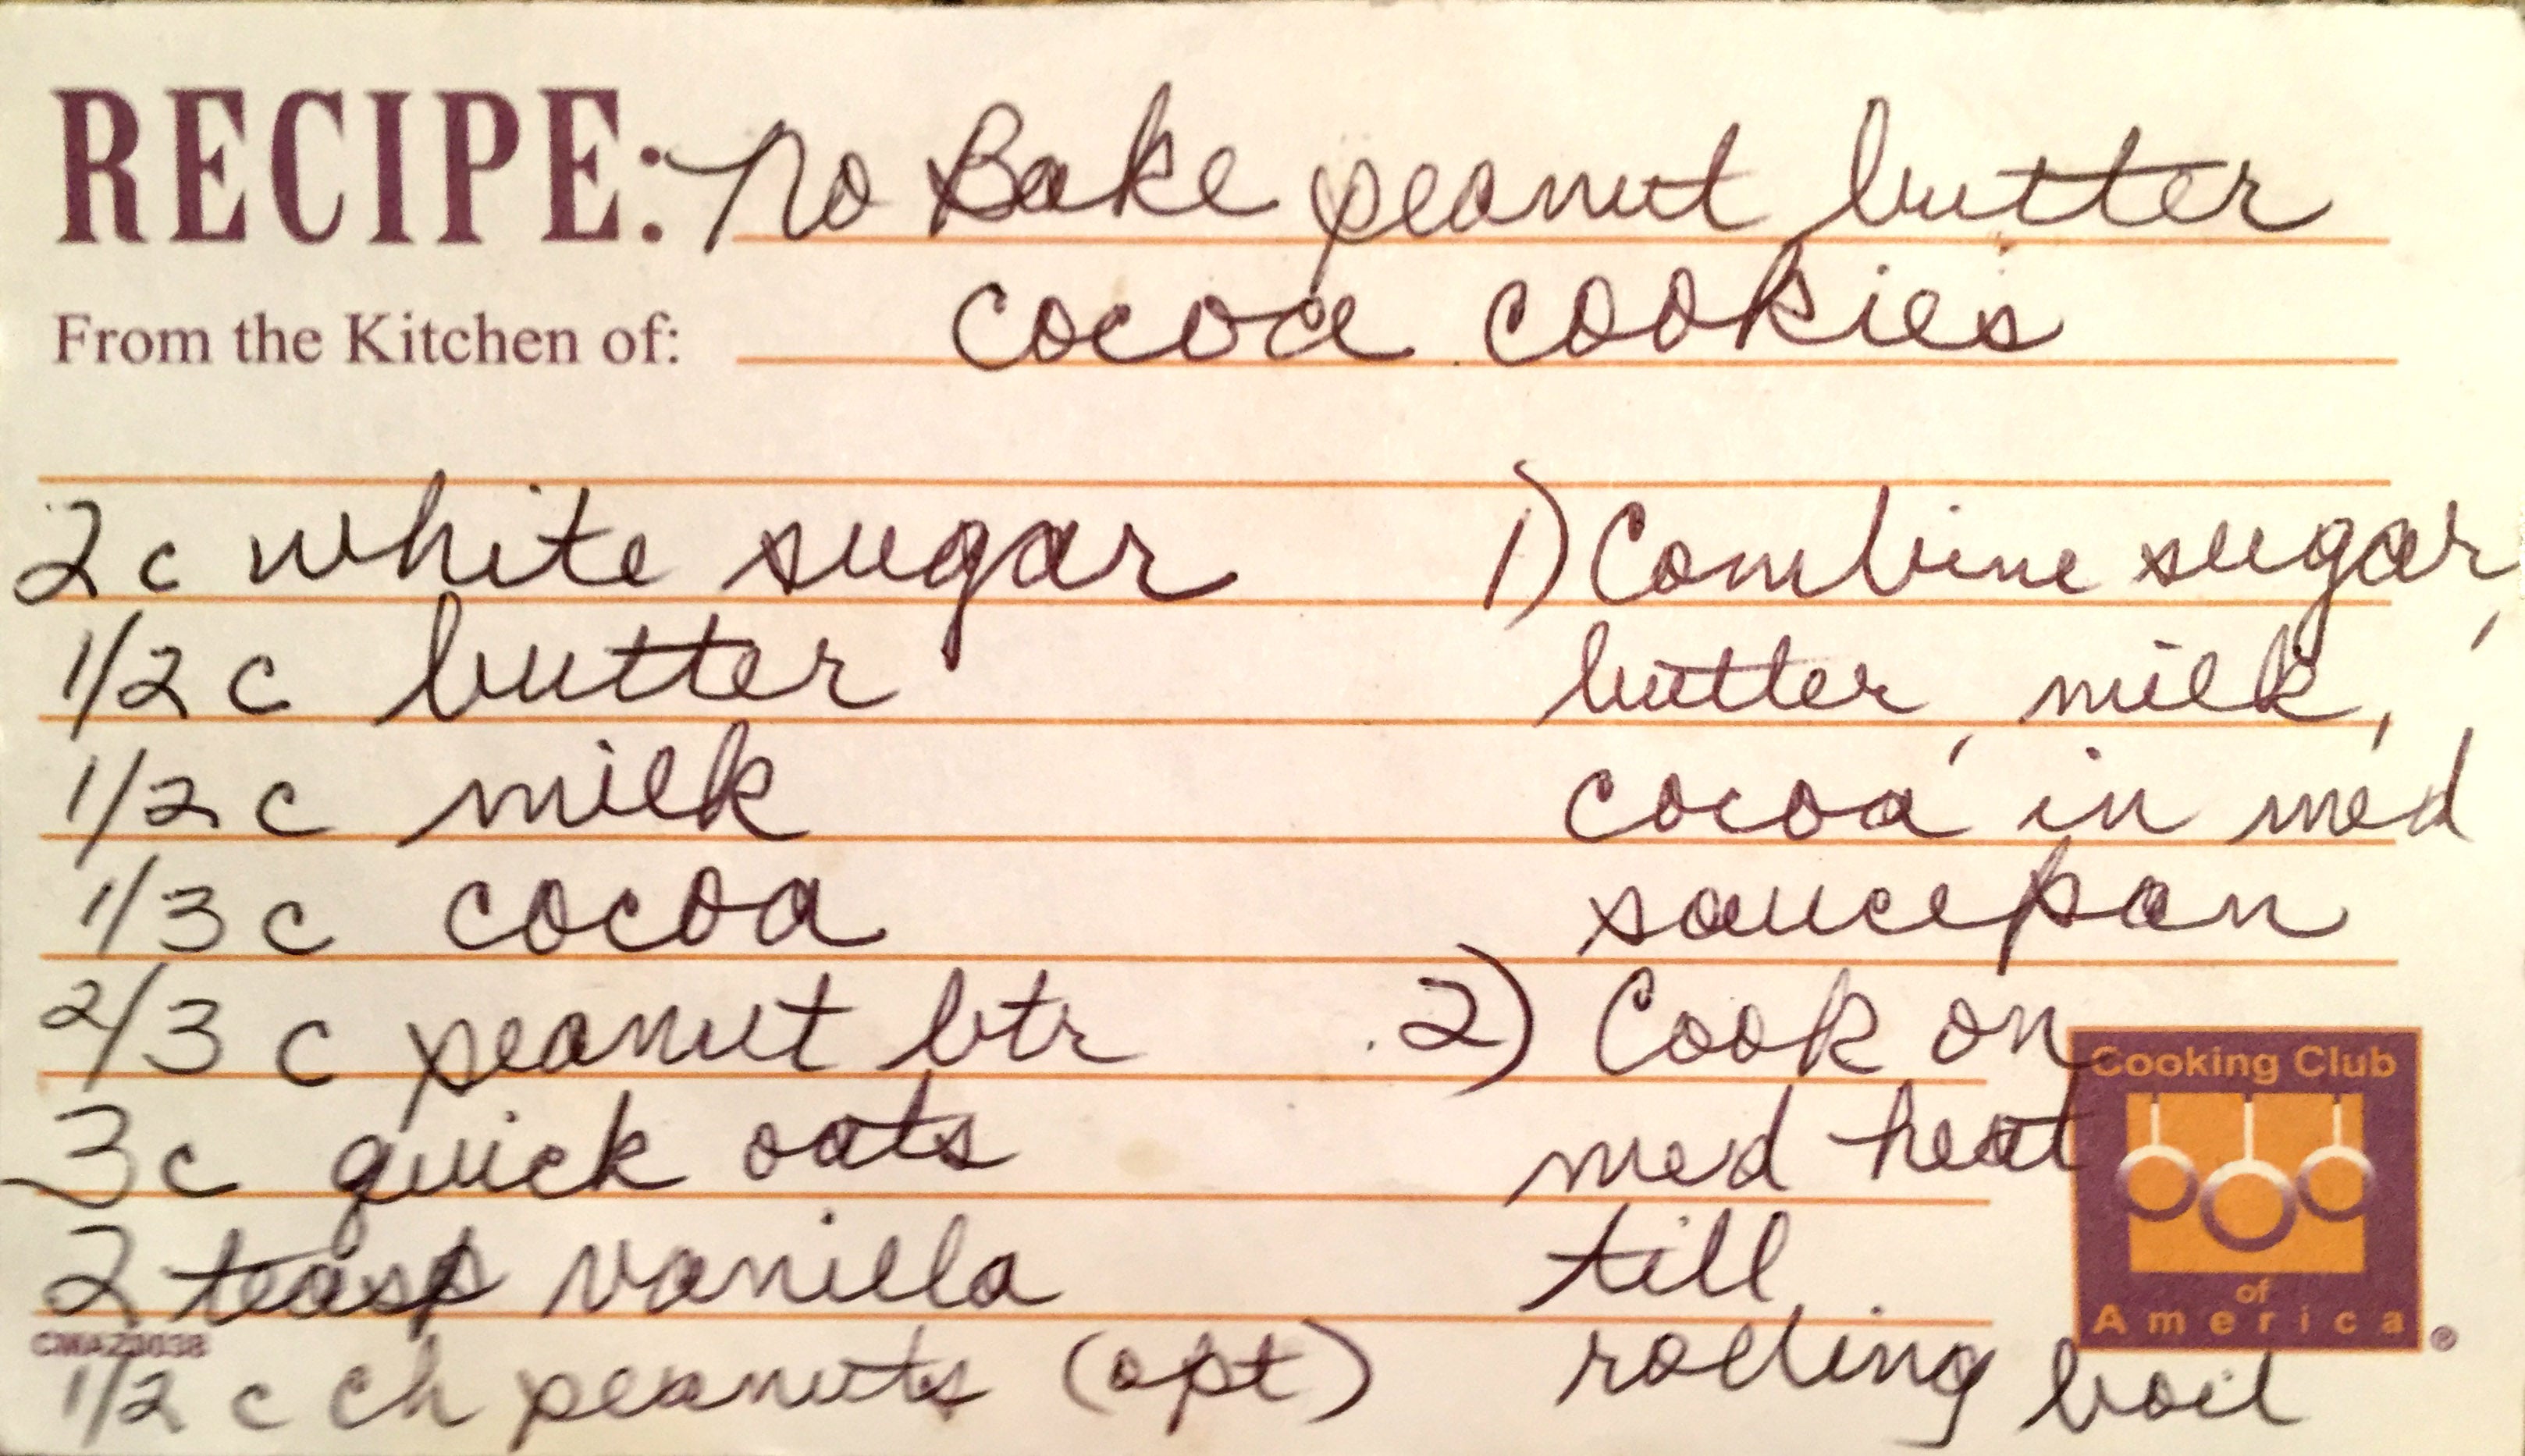 RECIPE: No Bake peanut butter
From the Kitchen of: cocoa cookies
2 c white sugar
1/2 c butter
1/2 c milk
1/3 c cocoa
2/3 c peanut btr
3 c quick oats
2 teasp vanilla
CMAZ0038
1/2 c ch peanuts (opt)
1) Combine sugar,
butter, milk,
cocoa in med
saucepan
2) Cook on
med heat
till
rolling boil
Cooking Club
of
America®